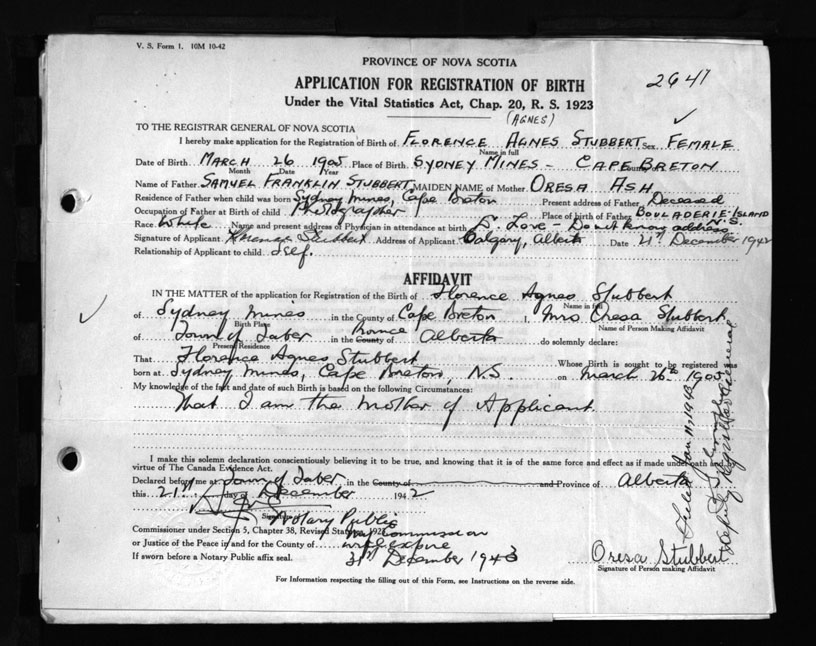 V. S. Form 1. 10M 10-42
PROVINCE OF NOVA SCOTIA
APPLICATION FOR REGISTRATION OF BIRTH
2641
Under the Vital Statistics Act, Chap. 20, R. S. 1923
(AGNES)
TO THE REGISTRAR GENERAL OF NOVA SCOTIA
I hereby make application for the Registration of Birth of FLORENCE AGNES STUBBERT Sex FEMALE
Name in full
Date of Birth MARCH 26 1905 Place of Birth SYDNEY MINES - County of CAPE BRETON
Month Date Year
Name of Father SAMUEL FRANKLIN STUBBERT MAIDEN NAME of Mother ORESA ASH
Residence of Father when child was born Sydney Mines, Cape Breton Present address of Father Deceased
Occupation of Father at Birth of child Photographer Place of birth of Father BOULADERIE ISLAND N.S.
Race White Name and present address of Physician in attendance at birth Dr. Love - Do not know address
Signature of Applicant Florence Stubbert Address of Applicant Calgary, Alberta Date 21st December 1942
Relationship of Applicant to child Self.
AFFIDAVIT
IN THE MATTER of the application for Registration of the Birth of Florence Agnes Stubbert
Name in full
of Sydney Mines in the County of Cape Breton, I, Mrs Oresa Stubbert
Birth Place Name of Person Making Affidavit
of Town of Taber in the County of Province Alberta do solemnly declare:
Present Residence
That Florence Agnes Stubbert Whose Birth is sought to be registered was
born at Sydney Mines, Cape Breton, N.S. on March 26th 1905
My knowledge of the fact and date of such Birth is based on the following Circumstances:
That I am the mother of Applicant
I make this solemn declaration conscientiously believing it to be true, and knowing that it is of the same force and effect as if made under oath and
virtue of The Canada Evidence Act.
Declared before me at Town of Taber in the County of and Province of Alberta
this 21st day of December 1942
Notary Public
Commissioner under Section 5, Chapter 38, Revised Statutes 1923 My Commission
or Justice of the Peace in and for the County of will expire
If sworn before a Notary Public affix seal. 31st December 1943
Oresa Stubbert
Signature of Person making Affidavit
For Information respecting the filling out of this Form, see Instructions on the reverse side.
Filed Jan 11, 1943
Deputy Registrar General